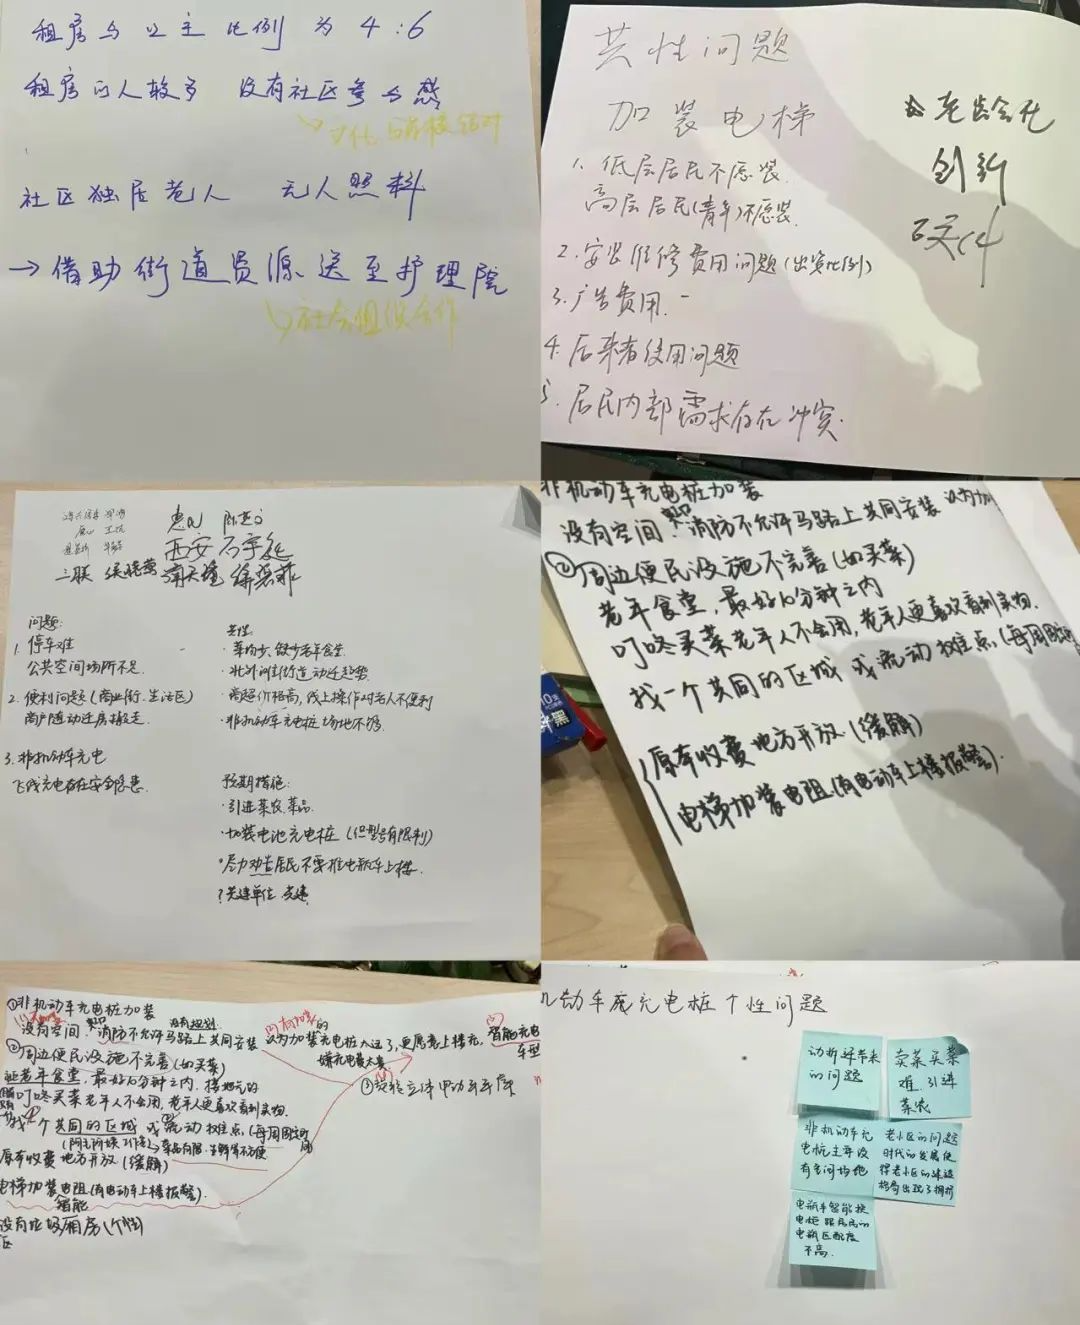 租房与业主比例为4:6
租房的人较多 没有社区参与感
社区独居老人 无人照料
→借助街道资源送至护理院
社会组织合作
共性问题
加装电梯
1. 低层居民不愿装.
高层居民(青年)不愿装.
2. 安装维修费用问题(出资比例)
3. 广告费用
4. 后来者使用问题
5. 居民内部需求存在冲突.
老龄化
创新
西安
三联
问题:
1. 停车难
公共空间场所不足.
2. 便利问题(商业街.生活区)
商户随动迁房搬走.
3. 非机动车充电
飞线充电存在安全隐患.
共性:
·菜场少、缺少老年食堂.
·商超价格高,线上操作对老人不便利
·非机动车充电桩场地不够.
预期措施:
·引进菜农.菜品.
·加装电池充电桩(但型号有限制)
·尽力劝告居民不要推电瓶车上楼.
?共建单位.党建
非机动车充电桩加装
没有空间?消防不允许马路上共同安装 认为加
②周边便民设施不完善(如买菜)
老年食堂,最好10分钟之内
叮咚买菜老年人不会用,老年人更喜欢看到实物.
找一个共同的区域 或流动摊点(每周固定
原本收费地方开放(缓解)
电梯加装电阻(有电动车上楼报警).
10支
黑
①非机动车充电桩加装
没有规划.
没有空间?消防不允许马路上共同安装 认为加装充电桩太远了,更愿意上楼充, 智能充电
嫌充电费太贵
车型
②周边便民设施不完善(如买菜)
老年食堂,最好10分钟之内,接地气的
叮咚买菜老年人不会用,老年人更喜欢看到实物.
找个共同的区域 或流动摊点(每周固定
原本收费地方开放(缓解)
电梯加装电阻(有电动车上楼报警).
智能
没有垃圾厢房(个性)
动车库充电桩个性问题
动拆迁带来
的问题
卖菜买菜
难.引进
菜农
非机动车充
电桩主要没
有空间场地
老小区的问题
时代的发展使
得老小区的建设
格局出现了拥挤
电瓶车智能换
电柜跟居民的
电瓶匹配度
不高.